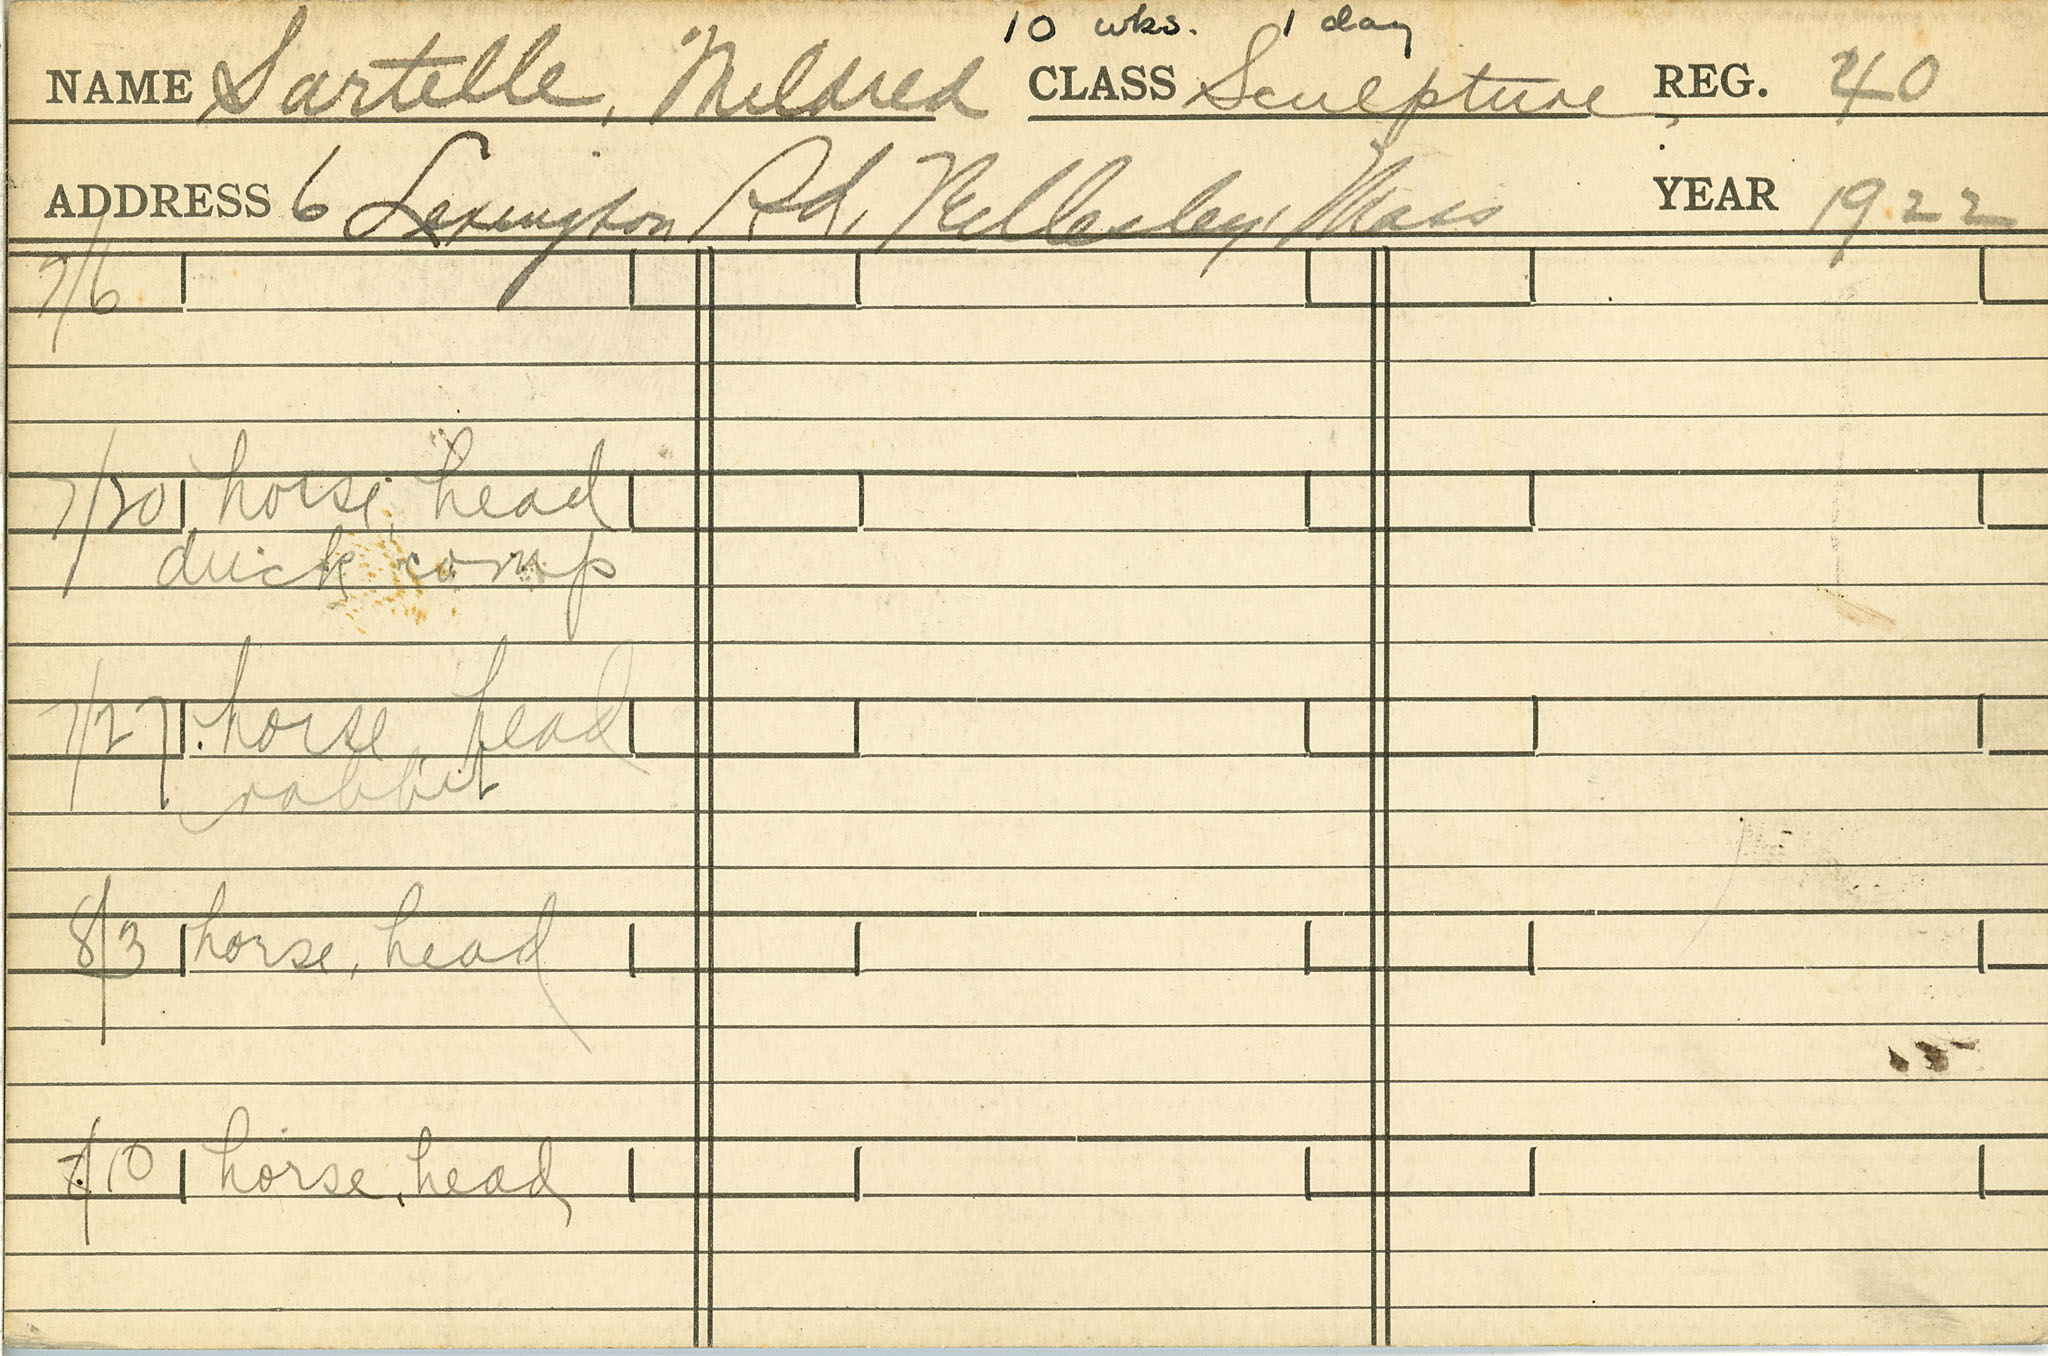 10 wks. 1 day
NAME Sartelle, Mildred CLASS Sculpture REG. 40
ADDRESS 6 Lexington Rd, Wellesley, Mass YEAR 1922
7/6
7/20 horse, head
duck comp
7/27 horse, head
rabbit
8/3 horse, head
/10 horse, head